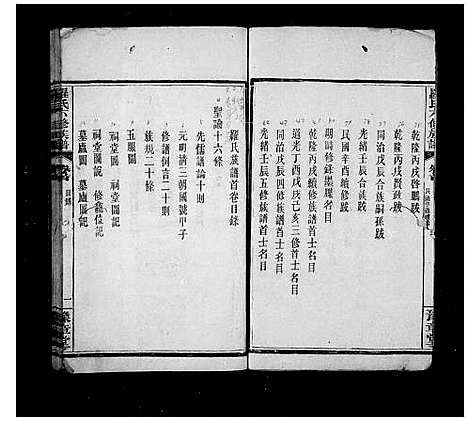 羅氏六修族譜
乾隆丙戌啓鵬跋
乾隆丙戌賢政跋
同治戊辰合族嗣孫跋
光緒壬辰合族跋
民國辛酉續修跋
乾隆丙戌續修族譜首士名目
道光丁酉戊戌己亥三修首士名目
同治戊辰四修族譜首士名目
光緒壬辰五修族譜首士名目
豫章堂
羅氏族譜首卷目錄
聖諭十六條
先儒譜論十則
元明清三朝國號甲子
修譜例言二十則
族規二十條
五服圖
祠堂圖說 祠堂圖記
墓廬圖 墓廬圖記
羅氏六修族譜
目錄
一
豫章堂